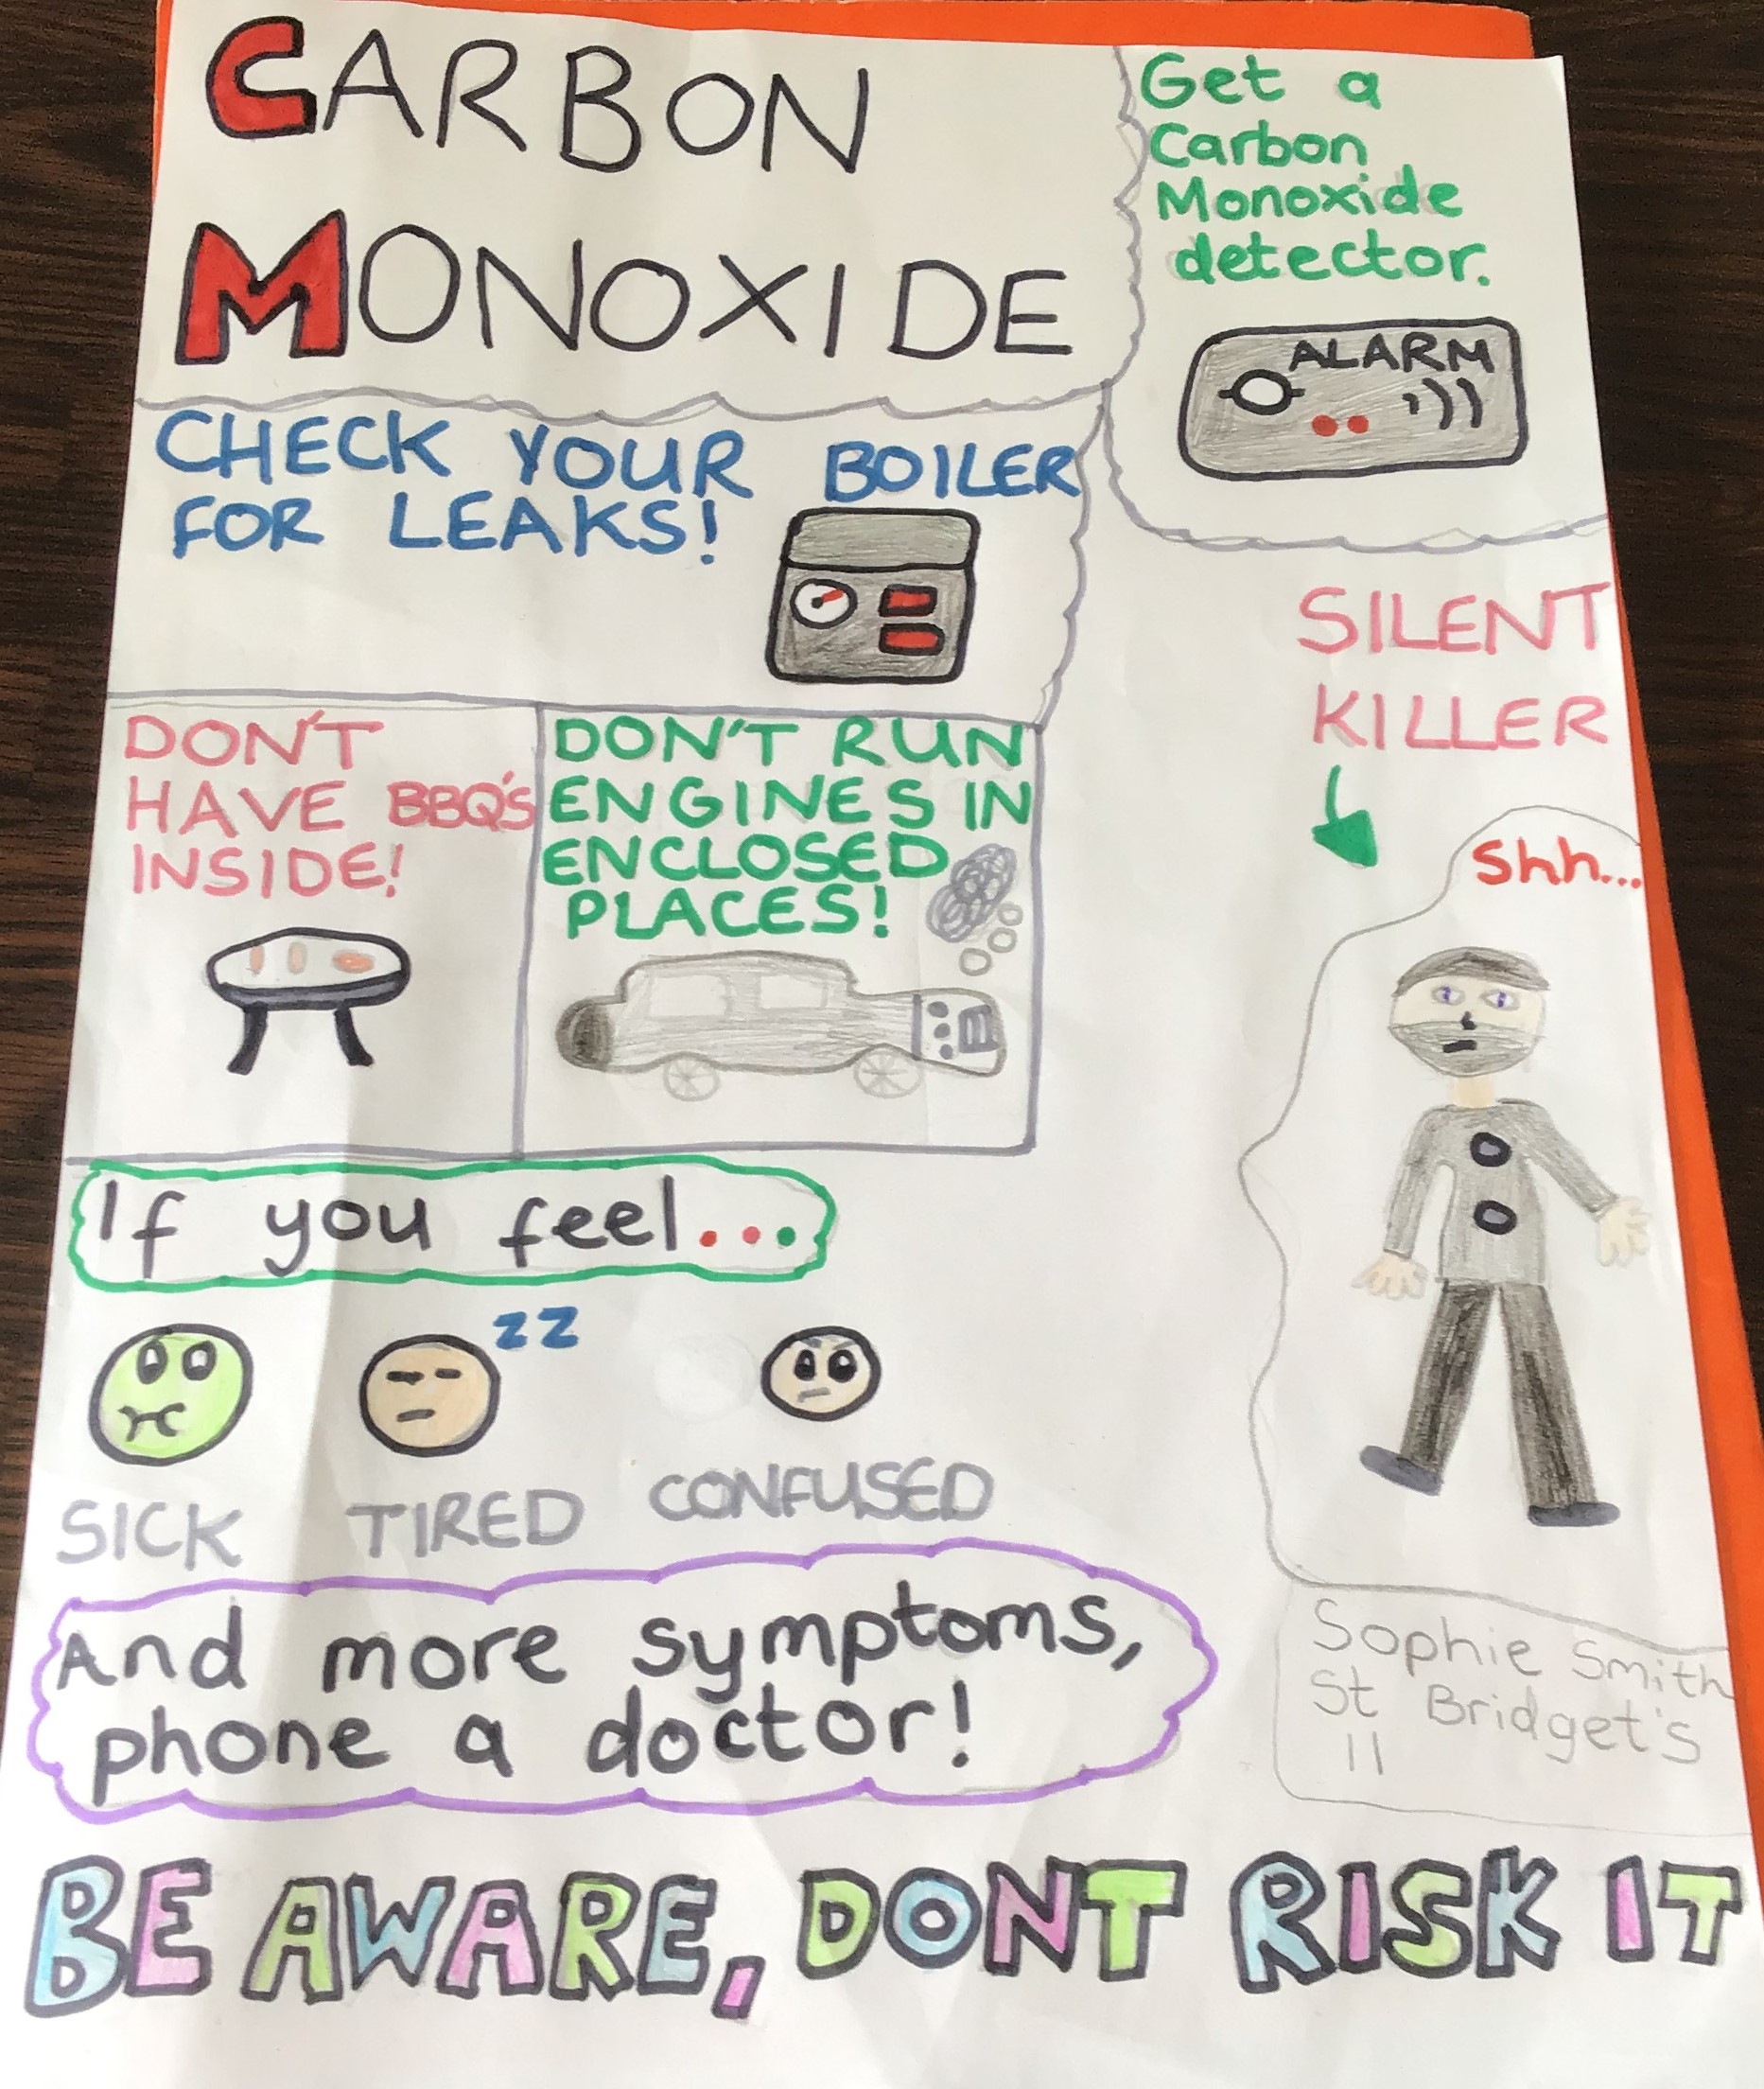 CARBON
MONOXIDE
Get a
Carbon
Monoxide
detector.
ALARM
CHECK YOUR BOILER
FOR LEAKS!
SILENT
KILLER
DON'T
HAVE BBQ'S
INSIDE!
DON'T RUN
ENGINES IN
ENCLOSED
PLACES!
Shh...
If you feel...
ZZ
SICK TIRED CONFUSED
And more symptoms,
phone a doctor!
Sophie Smith
St Bridget's
11
BE AWARE, DONT RISK IT